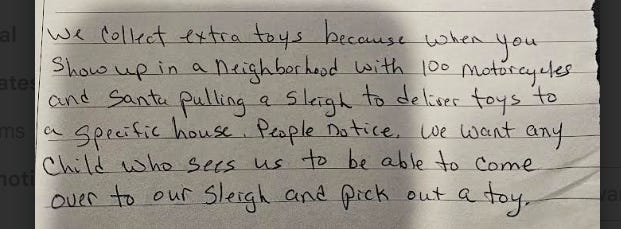 We collect extra toys because when you
Show up in a neighborhood with 100 motorcycles
and Santa pulling a Sleigh to deliver toys to
a specific house. People notice. We want any
Child who sees us to be able to come
over to our Sleigh and pick out a toy.